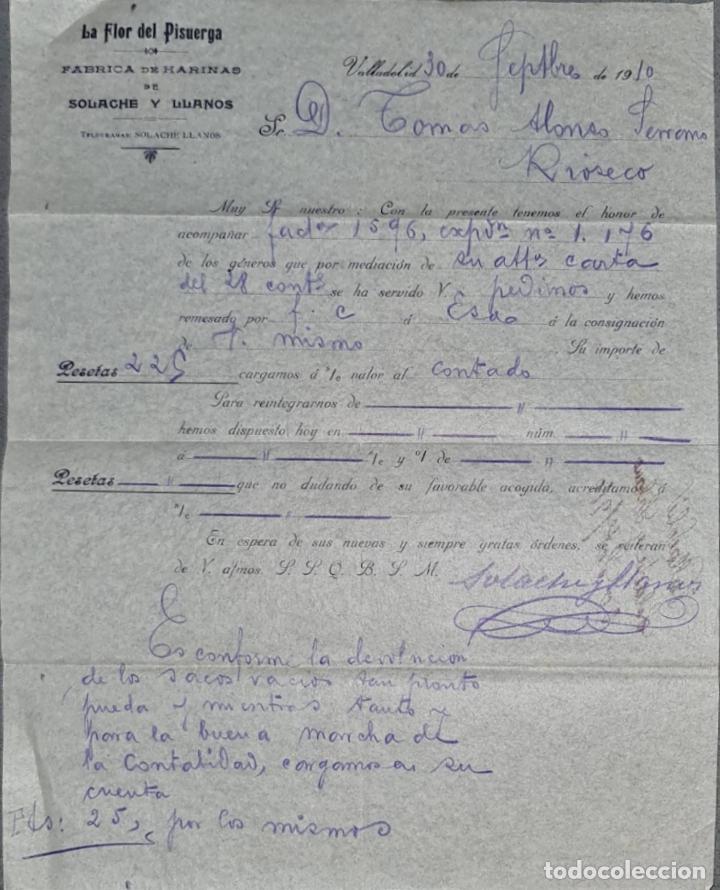 La Flor del Pisuerga
FABRICA DE HARINAS
DE
SOLACHE Y LLANOS
TELEGRAMAS SOLACHE LLANOS
Valladolid 30 de Septbre de 1910
Sr. D. Tomas Alonso Serrano
Rioseco
Muy Sr nuestro: Con la presente tenemos el honor de
acompañar 1596, expon nº 1.176
de los géneros que por mediación de su atta carta
del 28 contе se ha servido V. pedirnos y hemos
remesado por f. c á Esa á la consignación
de V. mismo Su importe de
Pesetas 225 cargamos á s/c valor al contado
Para reintegrarnos de " 
hemos dispuesto hoy en " núm. "
á " s/c y o/ de "
Pesetas " que no dudando de su favorable acogida, acreditamos á
s/c "
En espera de sus nuevas y siempre gratas órdenes, se reiteran
de V. afmos. S. S. Q. B. S. M. Solache y Llanos
Es conforme la devolucion
de los sacos vacios tan pronto
pueda y mientras tanto y
para la buena marcha de
la Contatidad, cargamos a su
cuenta
Pts: 25, por los mismos
todocoleccion.net